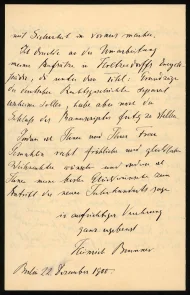 mit Sicherheit im voraus machen.
Ich drucke an der Umarbeitung
meiner Aufsätze in Holtzendorffs Encyclo-
pädie, die unter dem Titel: Grundzüge
der deutschen Rechtsgeschichte separat
erscheinen sollen, habe aber noch den
Schluss des Manuscripts fertig zu stellen.
Indem ich Ihnen und Ihrer Frau
Gemahlin recht fröhliche und glückliche
Weihnachten wünsche und zudem
Ihnen meine besten Glückwünsche zum
Antritt des neuen Jahrhunderts sage
in aufrichtiger Verehrung
ganz ergebenst
Heinrich Brunner
Berlin 22. Dezember 1900.